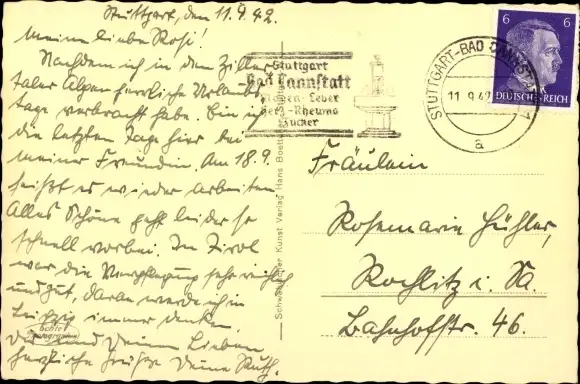 Stuttgart, den 11.9.42.
Meine liebe Rosi!
Nachdem ich in den Ziller-
taler Alpen herrliche Urlaubs-
tage verbracht habe. Bin ich
die letzten Tage hier bei
meiner Freundin. Am 18.9.
heißt es wieder arbeiten
Alles Schöne geht leider so
schnell vorbei. In Tirol
war die Verpflegung sehr reichlich
und gut, daran werde ich in
Leipzig immer denken.
Dir und Deinen Lieben
herzliche Grüße Deine Ruth.
Echte
Photographie
Stuttgart
Bad Cannstatt
Magen-Leber
Herz-Rheuma
Zucker
STUTTGART-BAD CANNSTATT
11.9.42
a
6 6
DEUTSCHES REICH
Kunst Verlag Hans
Fräulein
Rosemarie
Rochlitz i. Sa.
Bahnhofstr. 46.